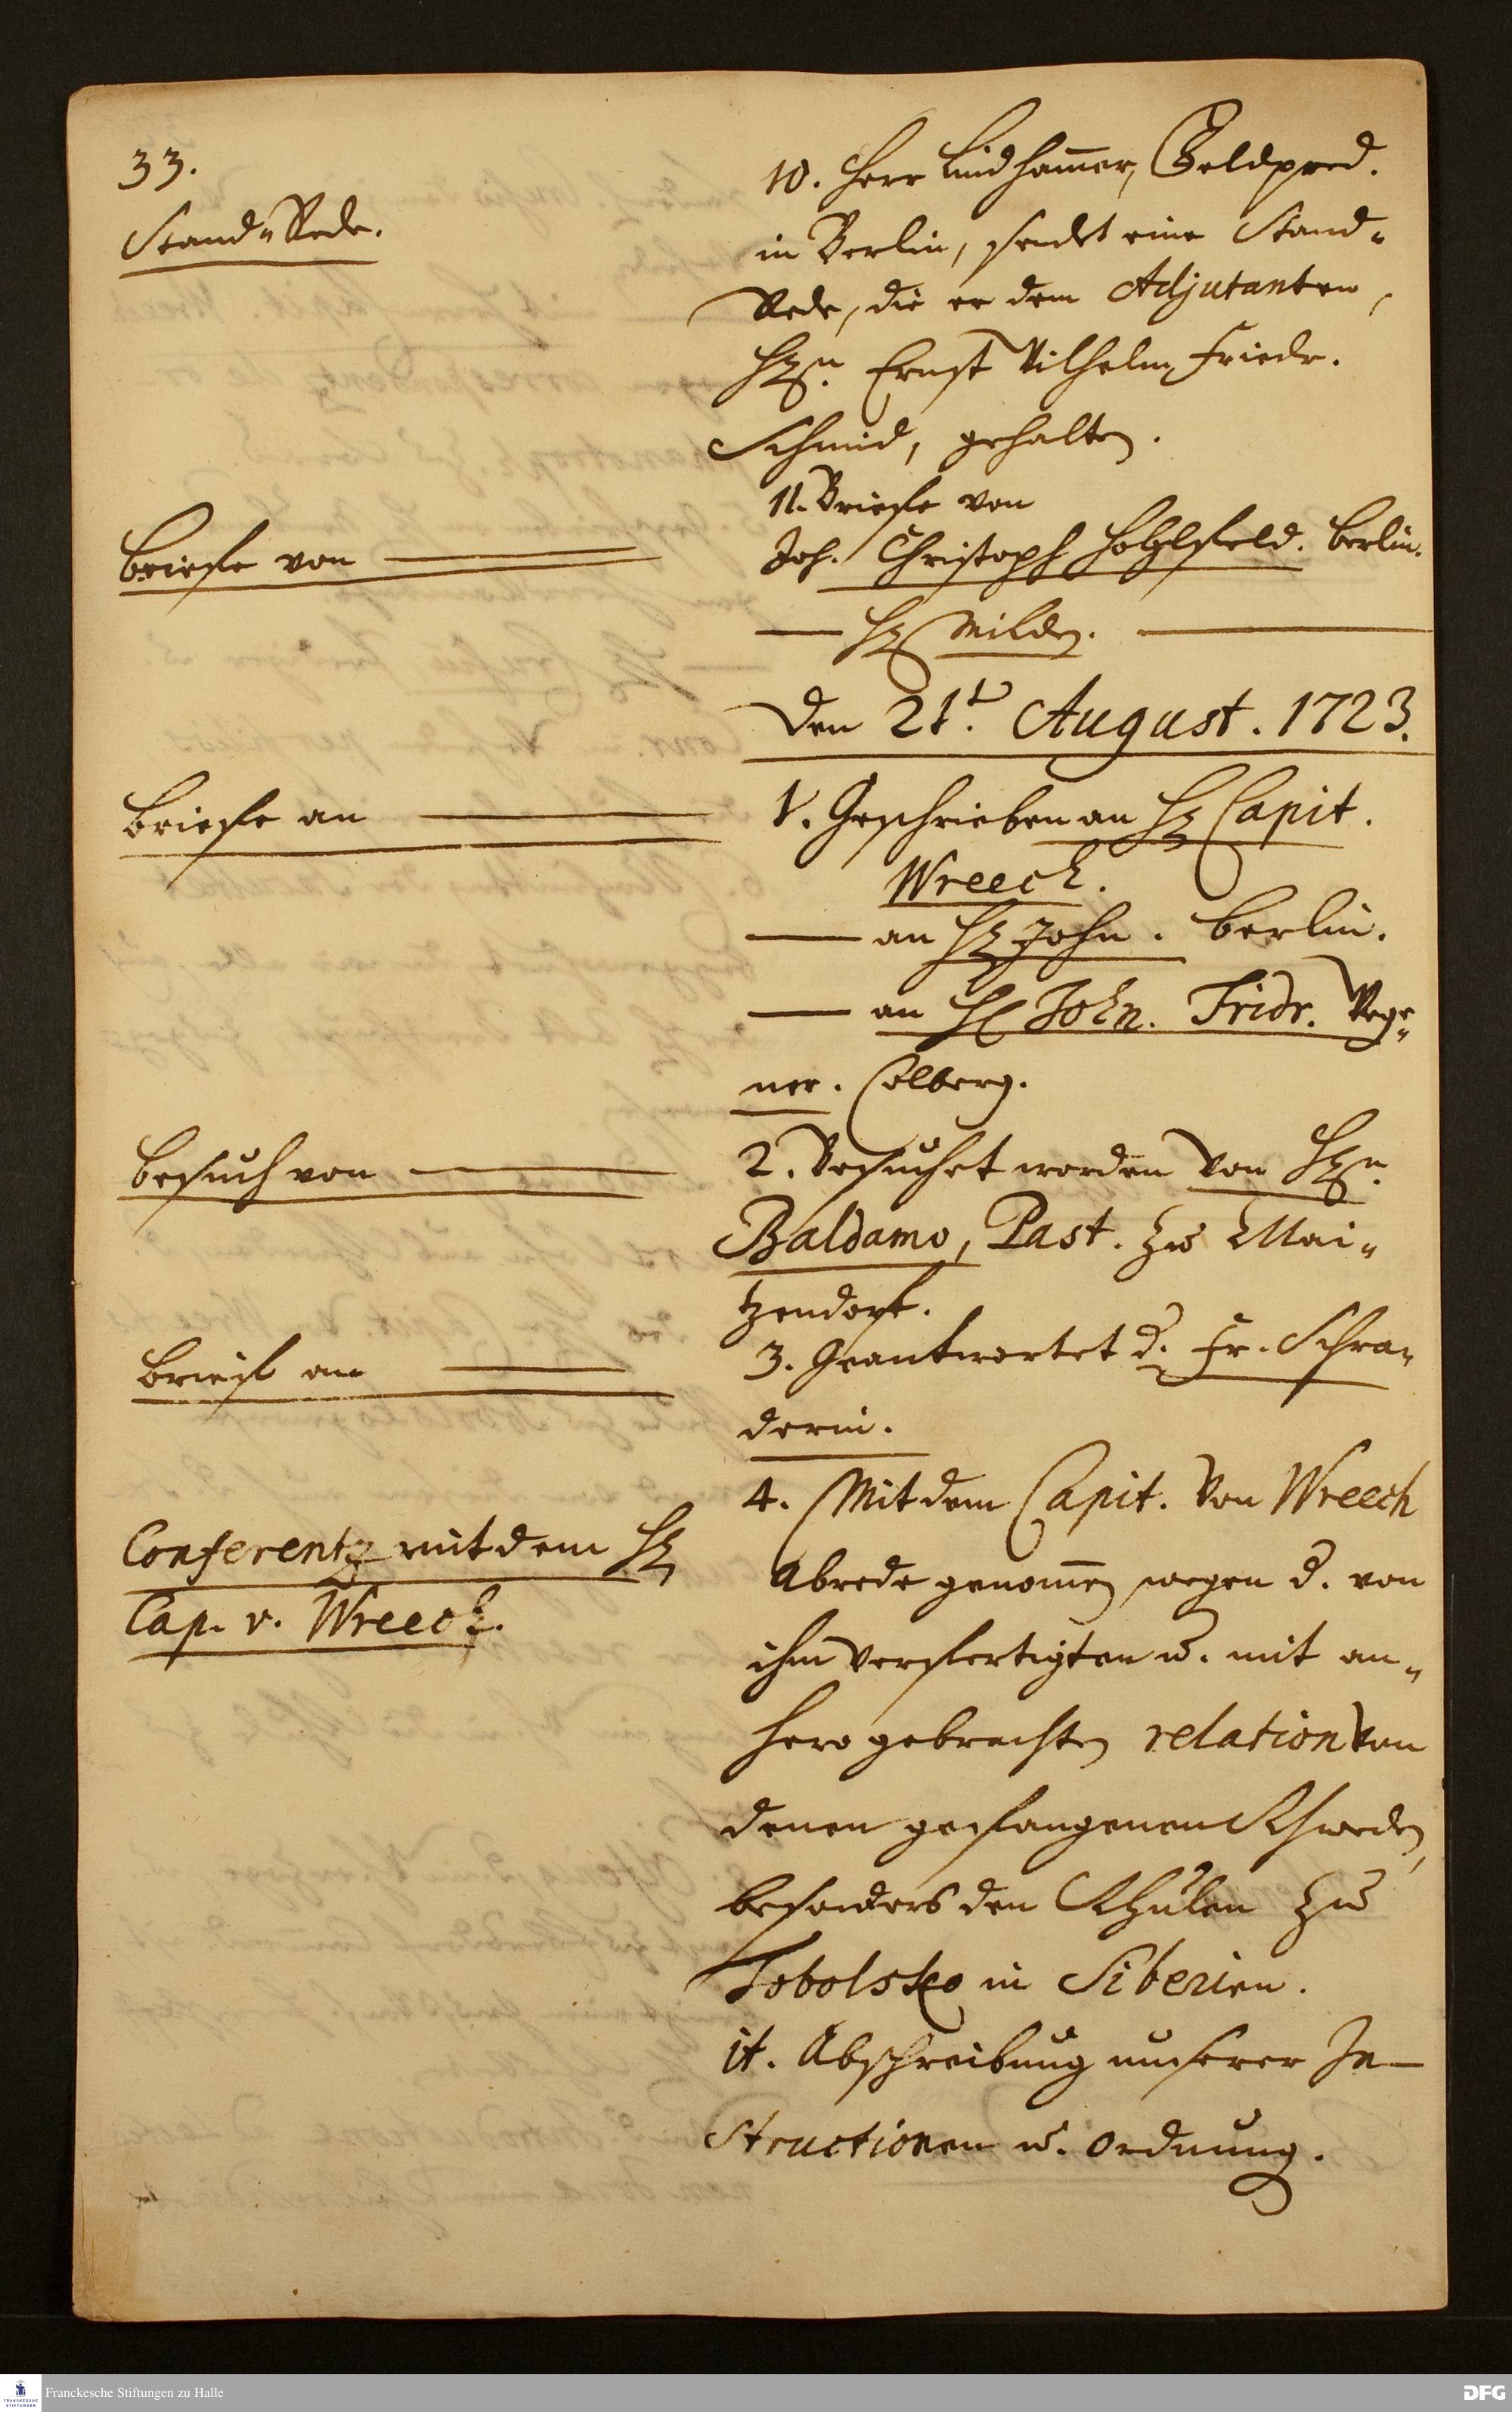 33.
Stand-Rede.
10. Herr Lindhammer, Feldpred.
in Berlin, sendet eine Stand-
Rede, die er dem Adjutanten,
Hrn. Ernst Wilhelm Friedr.
Schmid, gehalten.
Briefe von
11. Briefe von
Joh. Christoph Holtzfeld. Berlin.
— Hr Milden. —
Den 21t. August. 1723.
Briefe an
1. Geschrieben an Hr Capit.
Wreech.
— an Hr John. Berlin.
— an H John. Fridr. Wege-
ner. Colberg.
Besuch von
2. Besuchet worden von Hrn.
Baldamo, Past. zu Mai-
tzendorf.
Brief an
3. Geantwortet d. Fr. Schra-
derin.
Conferentz mit dem Hr
Cap. v. Wreech.
4. Mit dem Capit. von Wreech
Abrede genommen wegen d. von
ihm verfertigten u. mit an-
hero gebrachten relation von
denen gefangenen Schweden,
besonders den Schulen zu
Tobolsko in Siberien.
it. Abschreibung unserer In-
structionen u. Ordnung.
Franckesche Stiftungen zu Halle
DFG